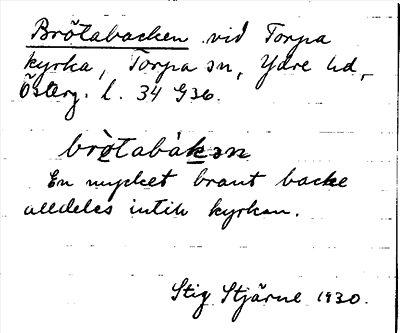 Brötabacken vid Torpa
kyrka, Torpa sn, Ydre hd,
Österg. l. 34 G36.
brötabàkən
En mycket brant backe
alldeles intill kyrkan.
Stig Stjärne 1930.